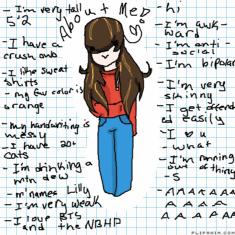 - I'm very tall
5'2
About Me
- I have a
crush omb
- I like sweat
shirts
- my fav color is
orange
- My handwriting is
mess
- I have 20+
cats
- I'm drinking a
mtn dew
- m'names Lilly
- I'm very weak
- I love BTS
and the NBHP
- hi
- I'm awk-
ward
- I'm anti -
social
- I'm bipolar
- I'm very
skinny
- I get offend
ed easily
- I u
what
- I'm running
out of things
- S
- AAAAAAA
A A A A A
A A A A
FLIPANIM.COM